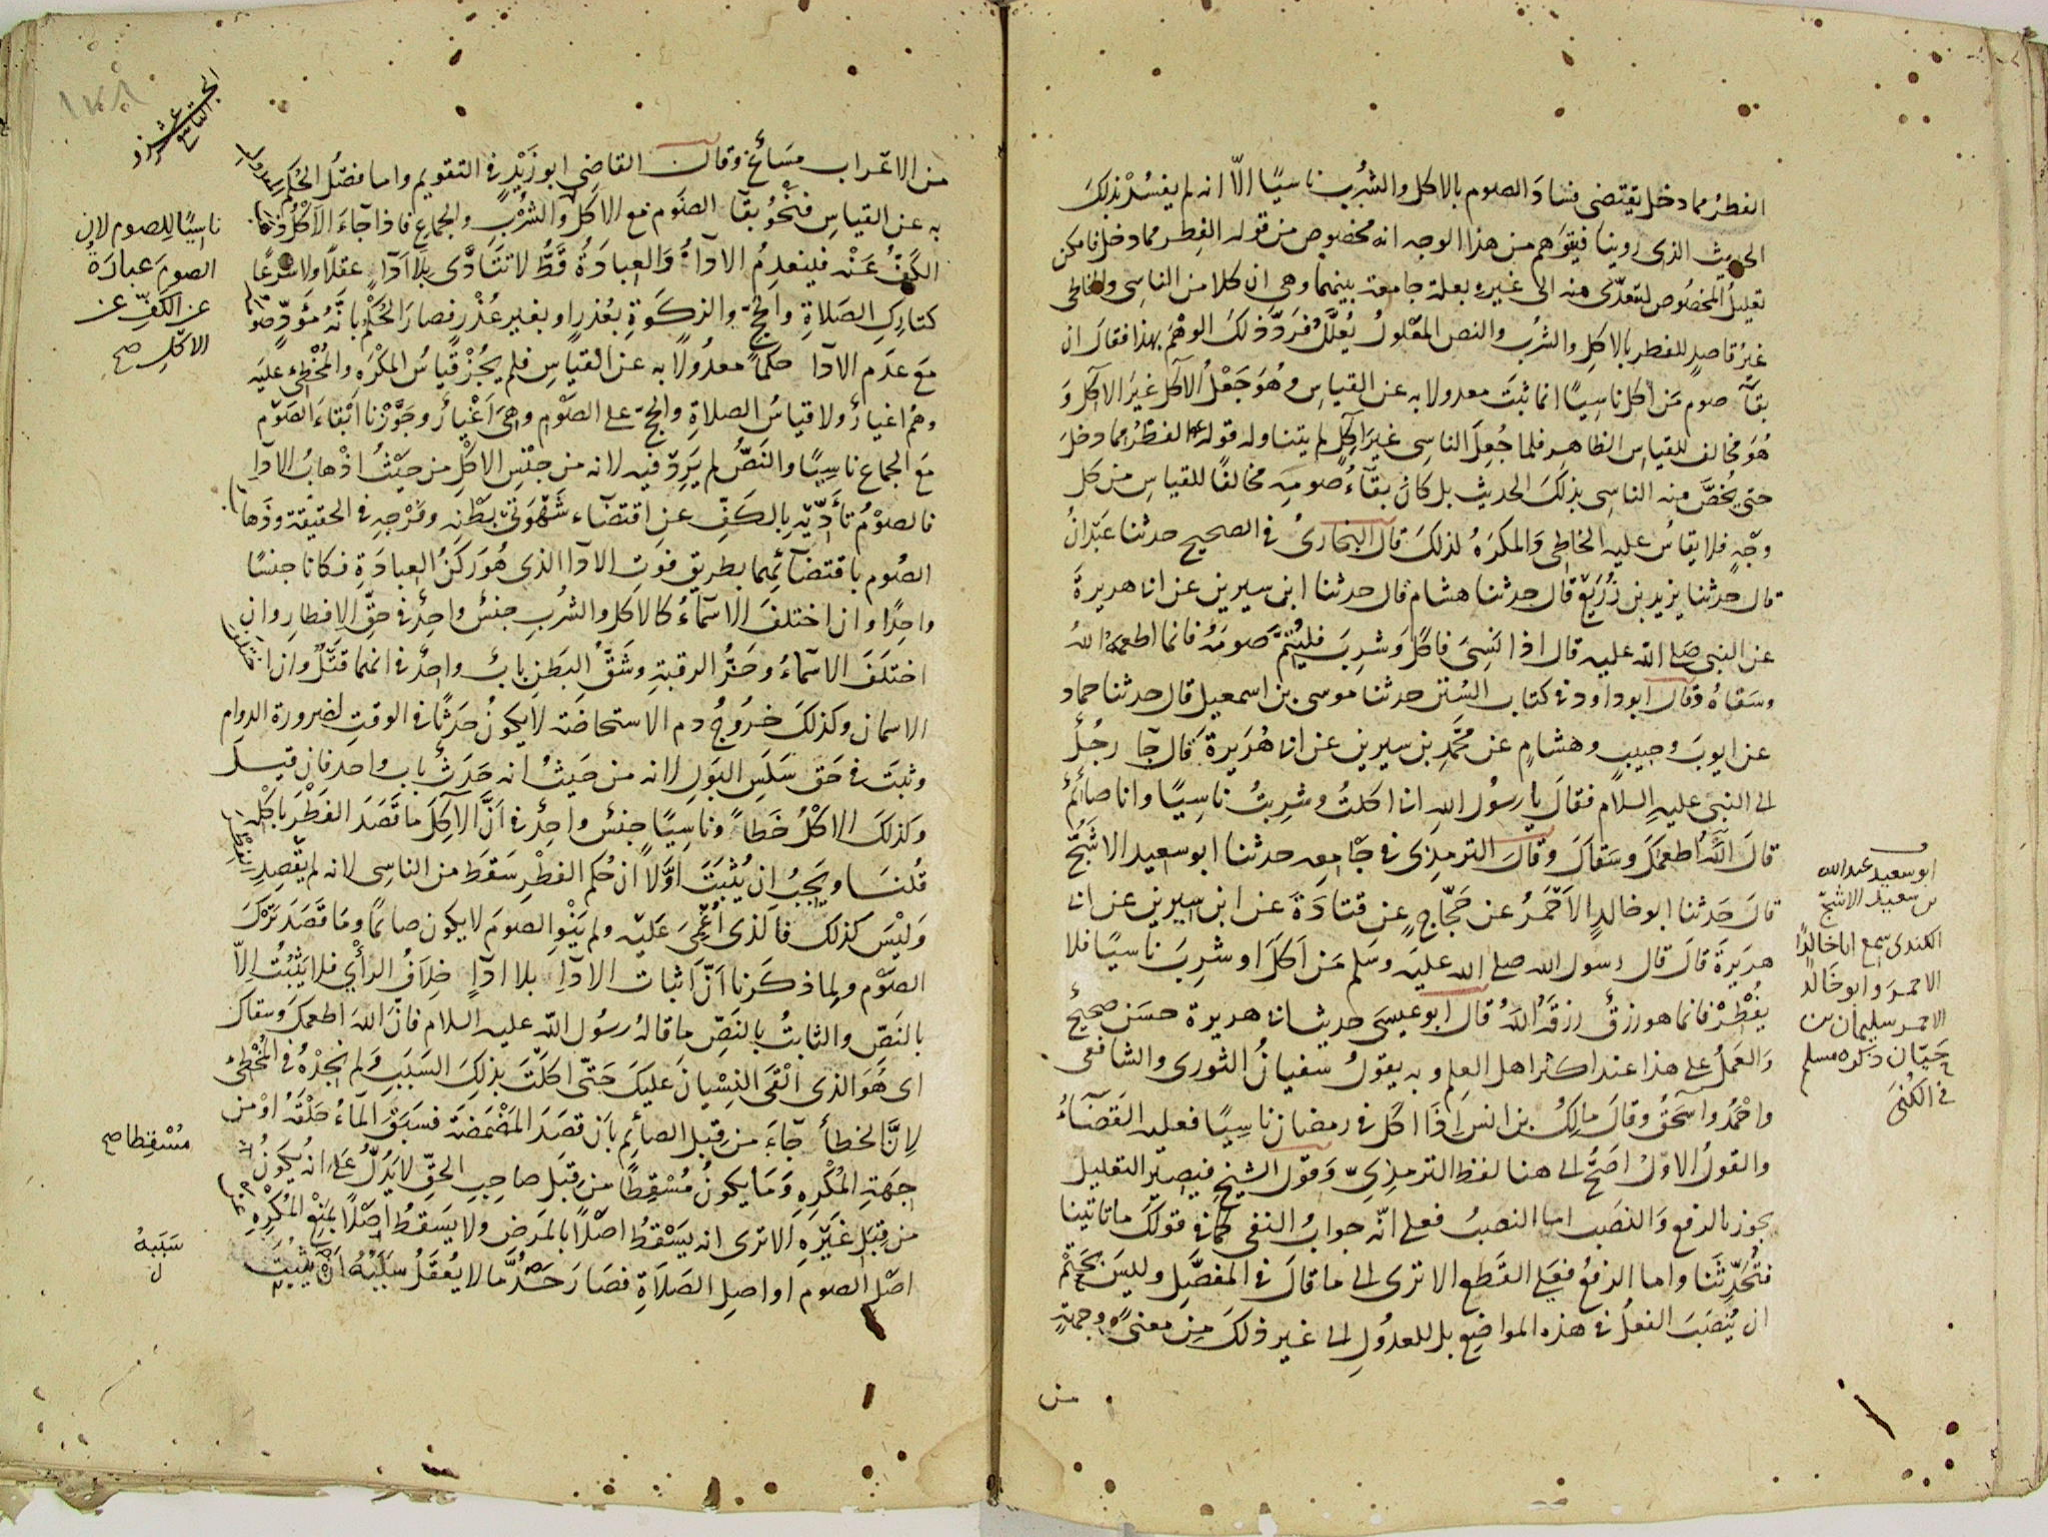 الفطرُ مما دخل يقتضى فسادَ الصوم بالاكل والشُرْب ناسيًا الاّ انه لم يفسُدْ بذلكَ
الحديث الذى روينا فيتوهم من هذا الوجه انه مخصوص من قوله الفِطر مما دخل فامكن
تعليلُ المخصُوص لتعدّى منه الى غيره بعلة جامعة بينهما وهى ان كلا من الناسِى والخاطى
غيرُ قاصدٍ للفطر بالاكلِ والشرُب والنص المعْلولُ يُعلَّلُ فرَدَّ ذلكَ الوهْمَ بهذا فقالَ ان
بقآَ صوم مَن اكل ناسيًا انما ثبتَ معدولا به عن القياسِ وهُوَ جَعْلُ الآكل غيرَ الآكل وَ
هُوَ مخالف للقياس الظاهِر فلما جُعِلَ الناسِى غيرَ آكِلٍ لم يتناوله قوله الفطرُ مما دخلَ
حتى يُخصَّ منه الناسِى بذلكَ الحديث بل كانَ بقآءُ صومِه مخالفًا للقياسِ من كل
وجْهٍ فلا يقاسُ عليه الخاطِى وَالمكرَهُ لذلكَ قالَ البخارىُ فى الصحيح حدثنا عَبْدانُ
قال حدثنا يزيد بن زُرَيْع قال حدثنا هشام قال حدثنا ابن سيرين عن ابى هريرةَ
عن النبى صلى الله عليه قال اذا نَسِىَ فاكلَ وَشرِبَ فليُتمَّ صومَهُ فانما اطعمَهُ اللهُ
وسَقاهُ وقال ابو داود فى كتاب السُنَن حدثنا موسى بن اسمعيل قال حدثنا حماد
عن ايوبَ وحبيبٍ وهشامٍ عن محَّمدِ بن سيرين عن ابى هُرَيرةَ قال جآ رجُلٌ
الى النبىّ عليهِ السلام فقالَ يا رسُول اللهِ انى اكلتُ وشرِبتُ ناسِيًا وانا صائمٌ
قالَ اللّهُ اطعمَكَ وسَقاكَ وقَالَ الترمذى فى جامِعِه حدثنا ابو سعيد الاشَجُّ
قالَ حَدثنا ابو خالدٍ الاَحْمَرُ عن حَجّاجٍ عن قتادَةَ عن ابن سِيرين عن ابى
هريرةَ قالَ قال رسول الله صلى الله عليه وسَلم مَن اَكلَ او شرِبَ ناسيًا فلا
يفُطْرْ فانما هو رزقٌ رزقهُ اللهُ قال ابو عيسَى حديث ابى هريرة حسَن صحيحٌ
وَالعَملُ على هذا عند اكثر اهل العلم وبه يقولُ سفيانُ الثورى والشافعى
واحْمدُ واسحَقُ وقالَ مالِكُ بن انسٍ اِذَا اكلَ فى رمضان ناسِيًا فعليه القَضَآءُ
والقولُ الاوّلُ اصَحُّ الى هنا لفظ الترمذِىّ وَقول الشيخ فيصير التعليل
يجوز بالرفع وَالنصَب اما النصبُ فعلى انّه جوابُ النفى كما فى قولكَ ما تاتينا
فتُحَدِّثَنا واما الرفعُ فعَلى القَطع الا ترى الى ما قالَ فى المفصَّلِ وليسَ بحَتْمٍ
ان يُنصَبَ الفعلُ فى هذه المواضِع بل للعدُولِ الى غير ذلكَ مِن معنىً وجهةٍ
من
ابو سعيد عبد الله
بن سعيد الاشج
الكندى سمع ابا خالدًا
الاحمرَ وابو خَالد
الاحمر سليمان بن
حَيّان ذكره مسلم
فى الكُنَى
من الاعْراب مسَائغ وقال القاضِى ابو زَيْدٍ فى التقويم واما فصْلُ الحُكم
به عن القياسِ فنَحْوُ بقآ الصَوم مع الاكل وَالشُرْب والجماع فاذا جآءَ الاَكْلُ
الكَفُّ عَنْه فلينعدِمُ الادآءُ وَالعِبادَةُ قَطُّ لا تتَأدَّى بلا ادآءٍ عقلًا ولا شرعًا
كتارِكِ الصَلاةِ والحجّ والزكَوةِ بعُذرٍ او بغير عُذْرٍ فصارَ الحُكْمُ بانّهُ مؤَدٍّ
مَعَ عدَمِ الادآ حكمًا معدُولا به عن القياسِ فلم يجُزْ قياسُ المكْرَه والمُخْطِئ عليَه
وهُمْ اغيارٌ ولا قياسُ الصلاةِ والحجّ على الصَوْم وهِىَ اَغْيارٌ وجَوَّزْنا ابْقاءَ الصَوم
مَع الجماع ناسِيًا والنَصُّ لم يَرِدْ فيه لانه من جنْسِ الاكْلِ من حيْثُ اذْهابُ الادآءِ
فالصوْمُ تأدّيهِ بالكَفِّ عنِ اقتضآء شَهْوَتىْ بَطْنِه وفَرْجِه فى الحقيقة وذَها
الصُوم باقتضآئِهما بطريقِ فوَتِ الادآ الذى هُوَ رُكنُ العِبادَةِ فكانا جنسًا
واحِدًا وان اختلفَ الاسْمآءُ كالاكل والشرُبِ جنسٌ واحِدٌ فى حقِّ الافطارِ وانِ
اختَلَفَ الاسمآءُ وحَزُّ الرقبةِ وشَقُّ البَطنِ بابٌ واحِدٌ فى انهما قتْلٌ وان
الاسمان وكذلكَ خرَوجُ دم الاستحاضَة لا يكونُ حدَثًا فى الوقتِ لضرورة الدوام
وثبتَ فى حَق سَلَسِ البَول لانه من حَيثُ انه حَدَث باب واحد فان قيلَ
وكذلكَ الاكْلُ خَطأً وناسِيًا جنسٌ واحِدٌ فى اَنّ الآكِلَ ما قصَدَ الفِطْرَ باكْلِه
قُلنَا ويَجِبُ ان يُثبَتَ اوّلا ان حُكم الفطْرِ سَقَط من الناسِى لانه لم يقْصِدِ
وَليْسَ كذلكَ فالذى اُغْمِىَ عَليْه ولم يَنْوِ الصومَ لا يكون صائمًا ومَا قصَد تَرْكَ
الصَوْم ولِما ذكرنا اَنَّ اثبات الادآءِ بلا ادآءٍ خِلافُ الرأْي فلا يَثبُتُ اِلاّ
بالنَصِّ والثابتُ بالنَصِّ ما قالهُ رسُول اللّه عليه السلام فانَّ اللهَ اطعمكَ وَسقاكَ
اى هُوَ الذى اَلْقَى النِسْيانَ عليكَ حَتّى اكلتَ بذلِكَ السَبَبِ وَلم نجدْهُ فى المُخْطئ
لِانَّ الخطأَ جآءَ من قِبَلِ الصائمِ بأن قصَدَ المضْمضَة فسبَقَ المآءُ حلْقَهُ اوْ من
جِهَةِ المُكْرِهِ وَمَا يكونُ مُسْقِطًا من قِبَلِ صاحِبِ الحقِّ لا يَدُلُّ على انه يكونُ
من قِبَلِ غيْرِهِ اَلا ترى انه يَسْقُطُ اصْلًا بالمرَضِ ولا يَسْقُطُ اصْلًا بمنْعِ المُكْرِهِ
اصْل الصوم او اصِلِ الصَلاةِ فصَارَ حَدُّ ما لا يُعقَلُ سبَبُهُ
ناسِيًا للِصوم لان
الصومَ عبارَةٌ
عن الكَفِّ عن
الاكل صح
مُسْقِطا صح
سَببهُ